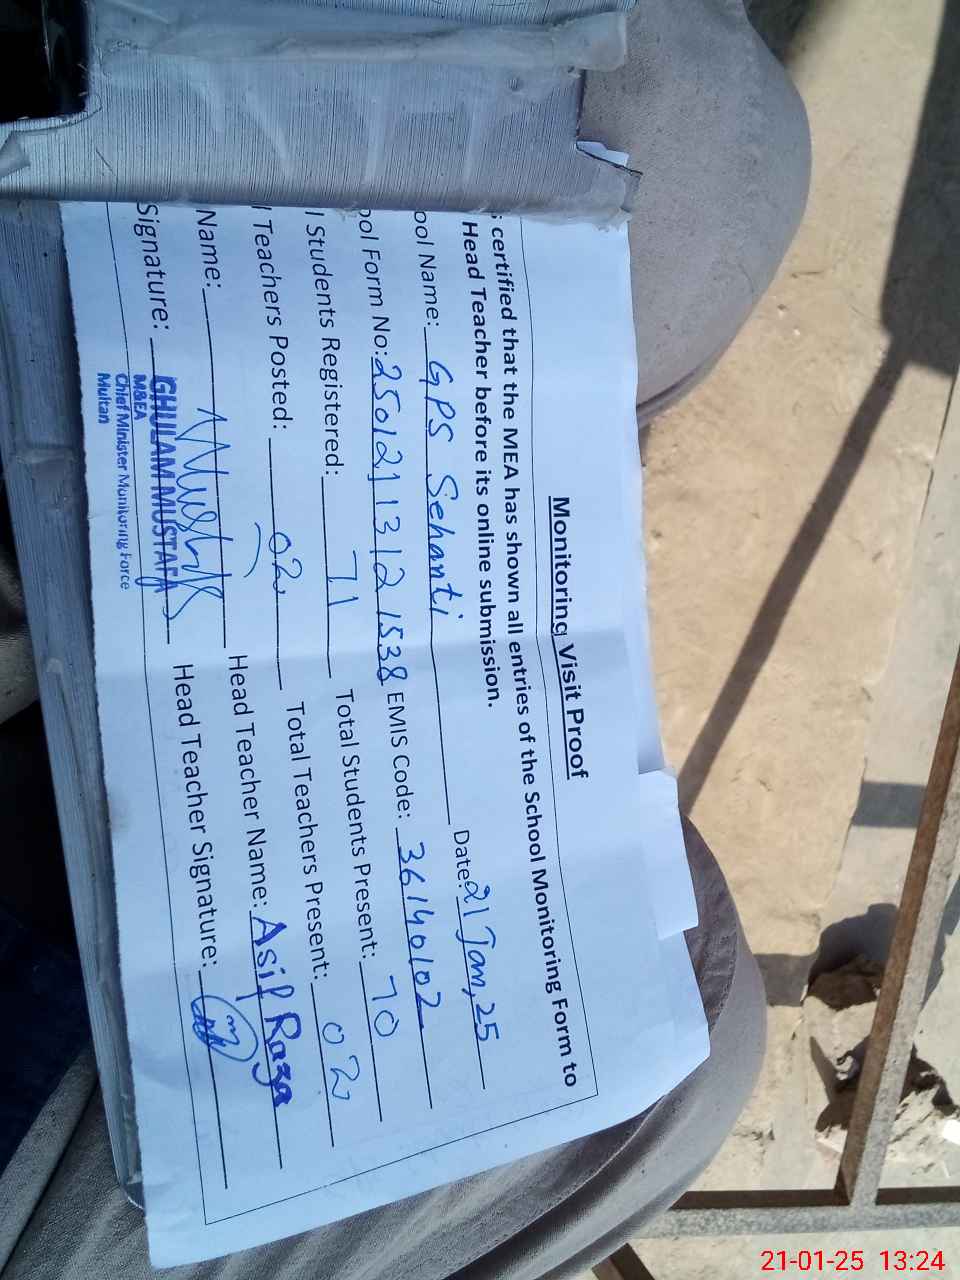 Monitoring Visit Proof
certified that the MEA has shown all entries of the School Monitoring Form to
Head Teacher before its online submission.
ool Name: GPS Sehanti Date: 21 Jan, 25
ool Form No: 25012113121538 EMIS Code: 36140102
l Students Registered: 71 Total Students Present: 70
l Teachers Posted: 02 Total Teachers Present: 02
Name: Head Teacher Name: Asif Raza
Signature: Head Teacher Signature:
GHULAM MUSTAFA
M&EA
Chief Minister Monitoring Force
Multan
21-01-25 13:24